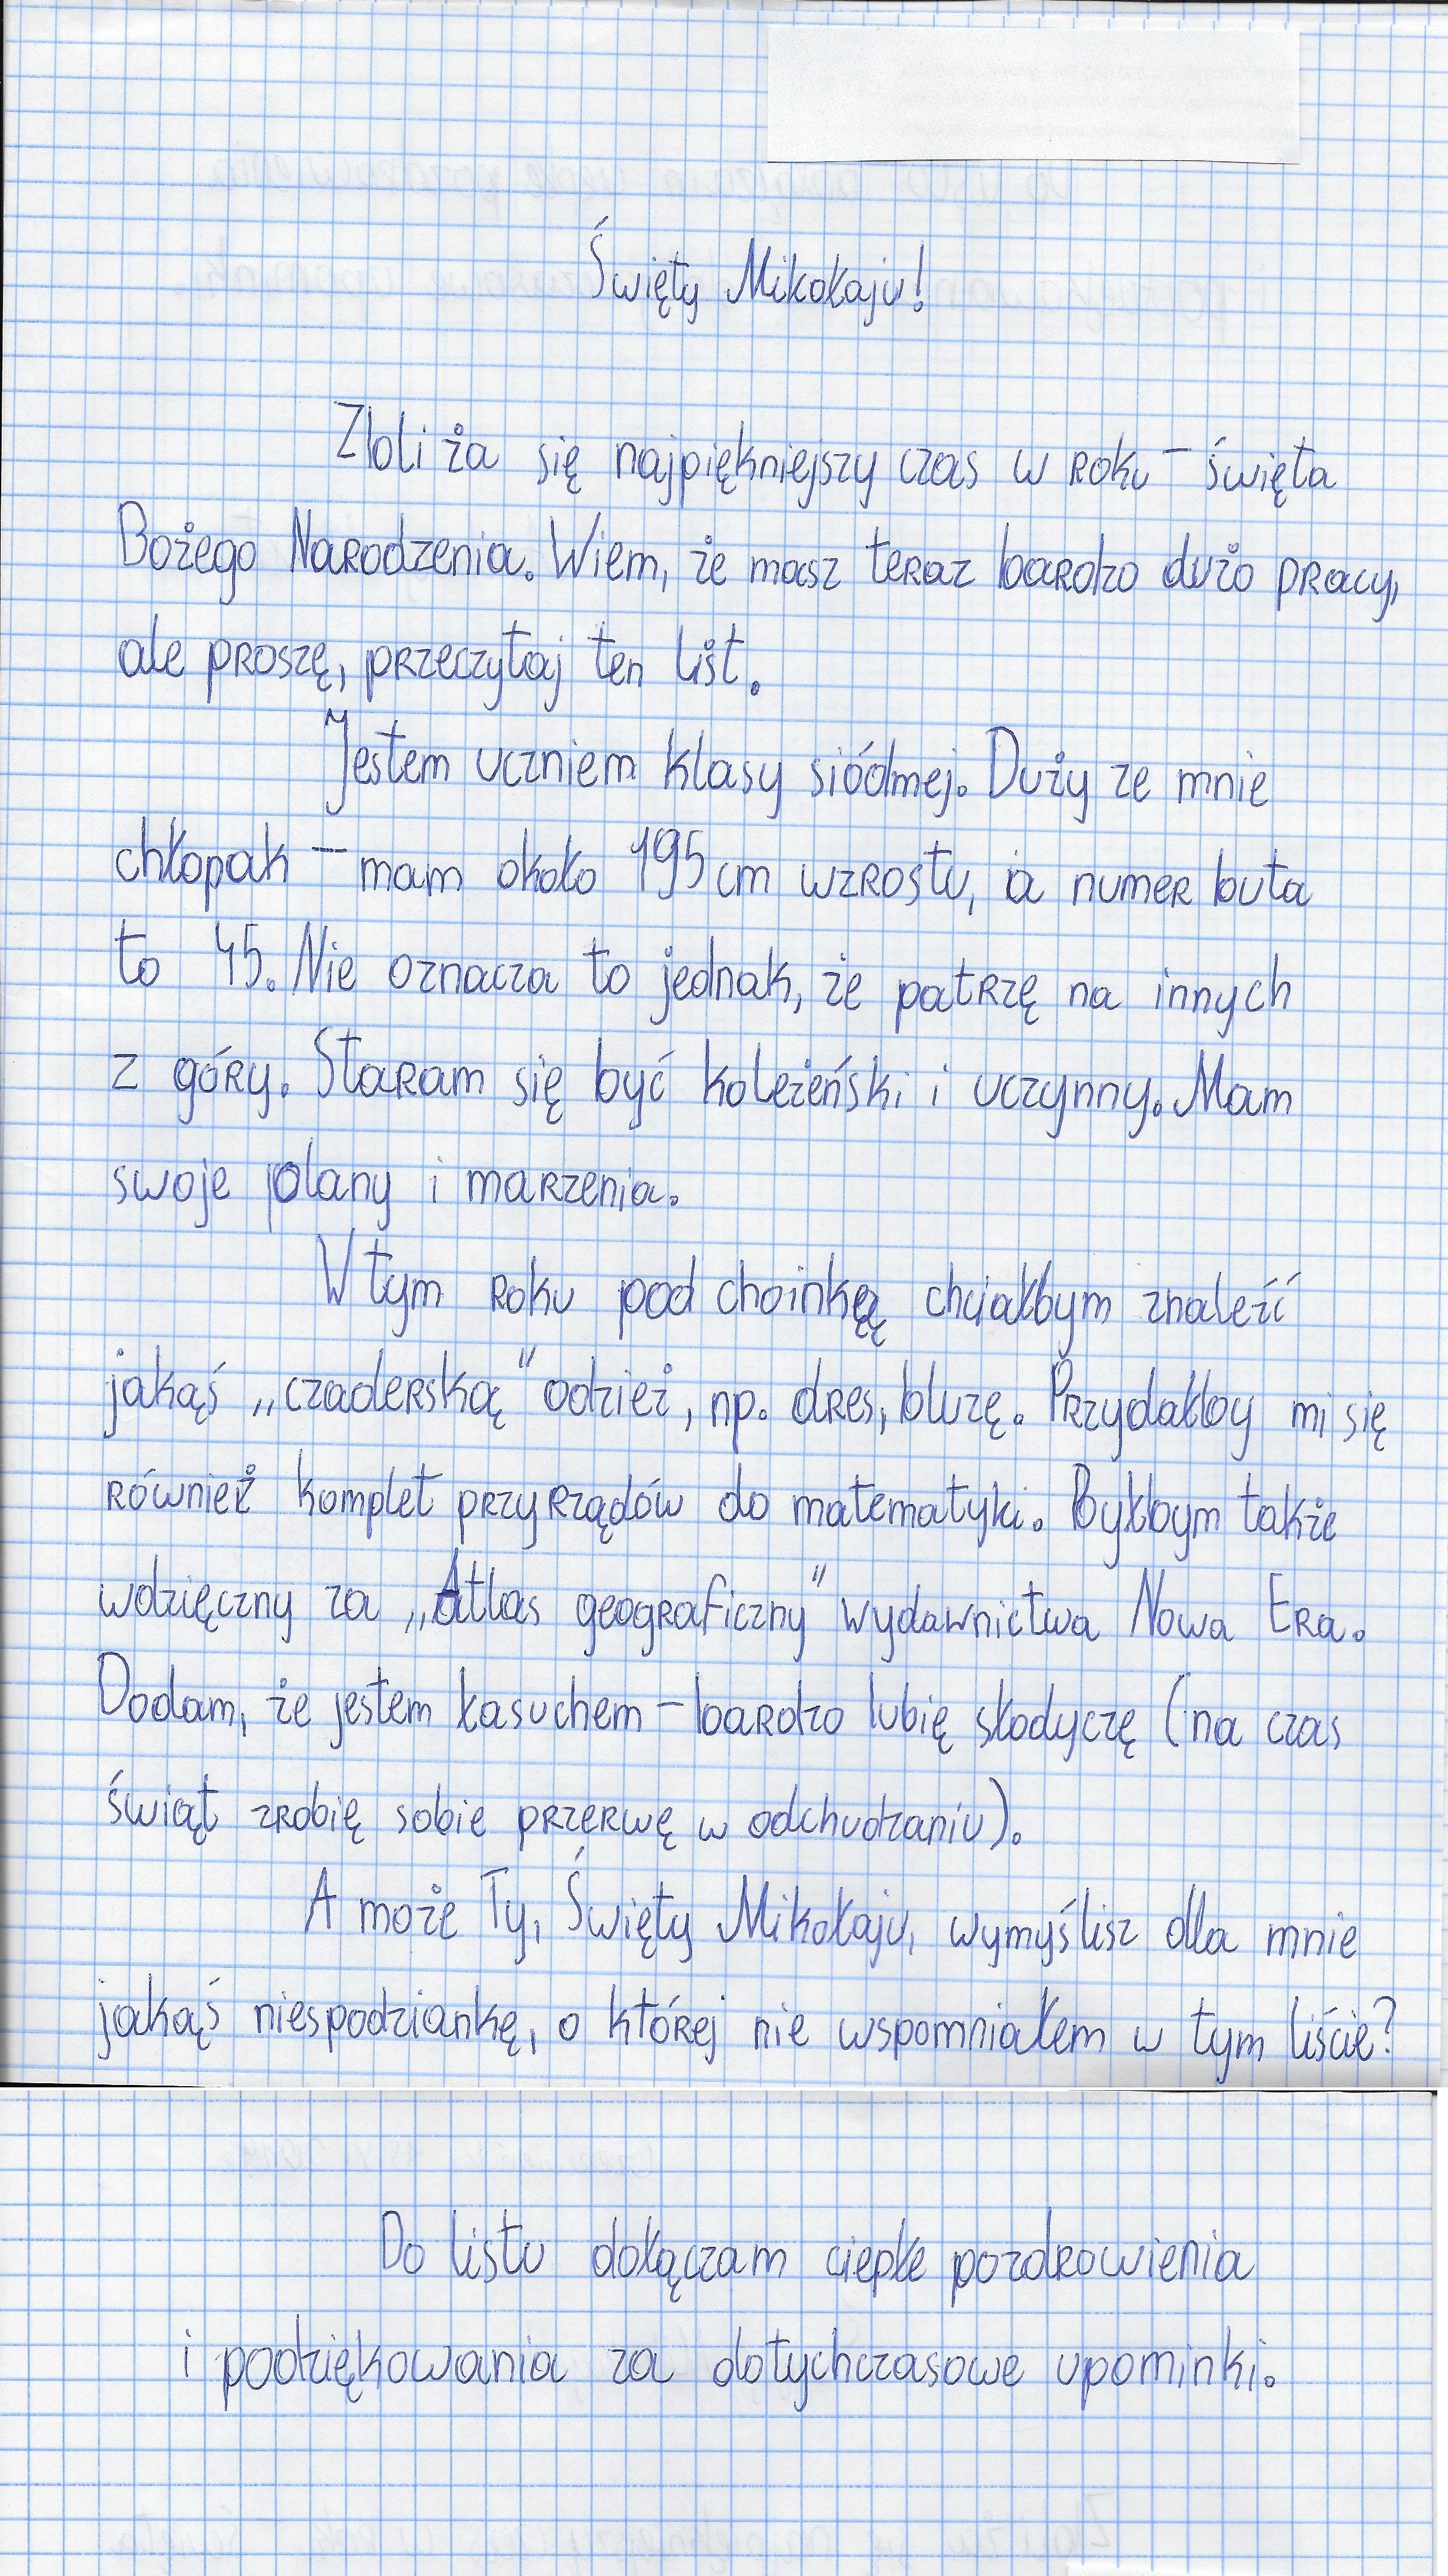 Święty Mikołaju!
Zbliża się najpiękniejszy czas w roku – święta
Bożego Narodzenia. Wiem, że masz teraz bardzo dużo pracy,
ale proszę, przeczytaj ten list.
Jestem uczniem klasy siódmej. Duży ze mnie
chłopak – mam około 195 cm wzrostu, a numer buta
to 45. Nie oznacza to jednak, że patrzę na innych
z góry. Staram się być koleżeński i uczynny. Mam
swoje plany i marzenia.
W tym roku pod choinkę chciałbym znaleźć
jakąś „czaderską” odzież, np. dres, bluzę. Przydałby mi się
również komplet przyrządów do matematyki. Byłbym także
wdzięczny za „Atlas geograficzny” wydawnictwa Nowa Era.
Dodam, że jestem łasuchem – bardzo lubię słodyczę (na czas
świąt zrobię sobie przerwę w odchudzaniu).
A może Ty, Święty Mikołaju, wymyślisz dla mnie
jakąś niespodziankę, o której nie wspomniałem w tym liście?
Do listu dołączam ciepłe pozdrowienia
i podziękowania za dotychczasowe upominki.